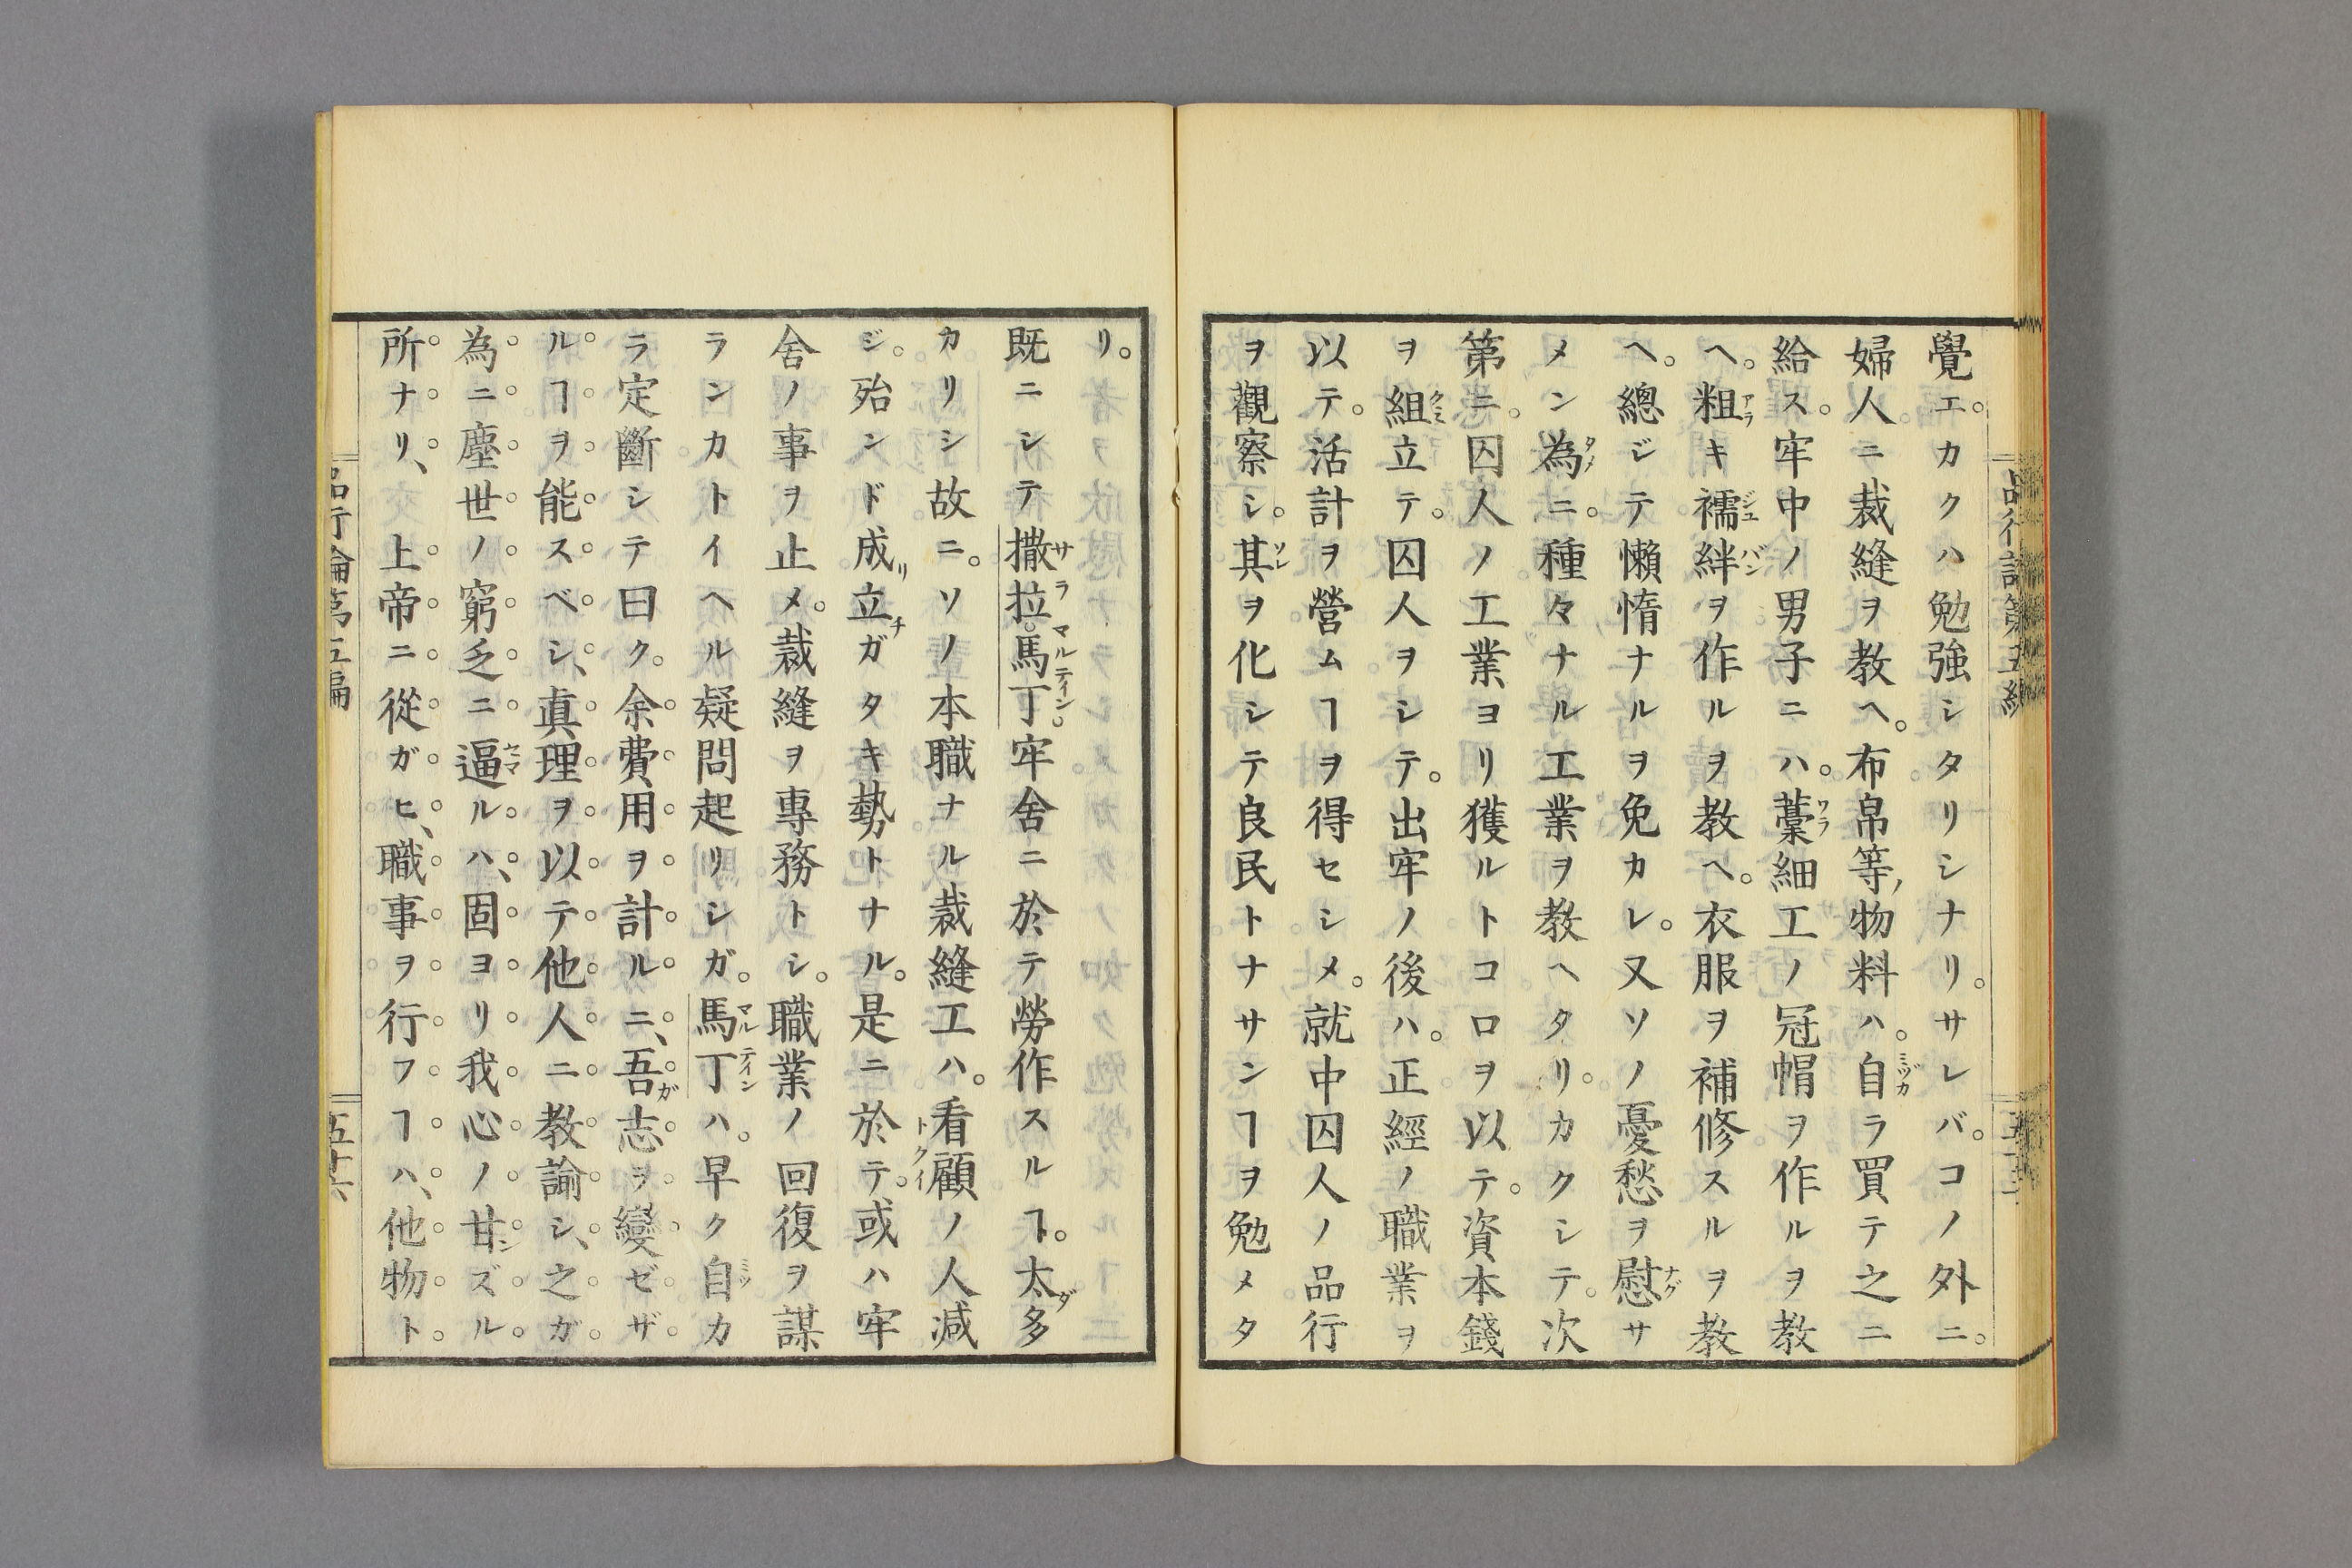 覺エ。カクハ勉強シタリシナリ。サレバ。コノ外ニ。
婦人ニ裁縫ヲ教ヘ。布帛等ノ物料ハ。自ミヅカラ買テ之ニ
給ス。牢中ノ男子ニハ。藁ワラ細工ノ冠帽ヲ作ルヲ教
ヘ。粗アラキ襦ジユ絆バンヲ作ルヲ教ヘ。衣服ヲ補修スルヲ教
ヘ。總ジテ懶惰ナルヲ免カレ。又ソノ憂愁ヲ慰ナグサ
メン為タメニ。種々ナル工業ヲ教ヘタリ。カクシテ。次
第ニ。囚人ノ工業ヨリ獲ルトコロヲ以テ。資本錢
ヲ組クミ立テ。囚人ヲシテ。出牢ノ後ハ。正經ノ職業ヲ
以テ。活計ヲ營ムヿヲ得セシメ。就中囚人ノ品行
ヲ觀察シ。其ソレヲ化シテ良民トナサンヿヲ勉メタ
リ。
既ニシテ撒サ拉ラ。馬マル丁テイン。牢舍ニ於テ勞作スルヿ。太ダ多
カリシ故ニ。ソノ本職ナル裁縫工ハ。看顧トクイノ人減
ジ。殆ンド成リ立チガタキ勢トナル。是ニ於テ。或ハ牢
舍ノ事ヲ止メ。裁縫ヲ專務トシ。職業ノ回復ヲ謀
ランカトイヘル疑問起リシガ。馬マル丁テインハ。早ク自ミヅカ
ラ定斷シテ曰ク。余費用ヲ計ルニ、吾ガ志ヲ變ゼザ
ルヿヲ能スベシ、真理ヲ以テ他人ニ教諭シ、之ガ
為ニ塵世ノ窮乏ニ逼セマルハ、固ヨリ我心ノ甘ンズル
所ナリ、上帝ニ從ガヒ、職事ヲ行フヿハ、他物ト
品行論第五編
五十六